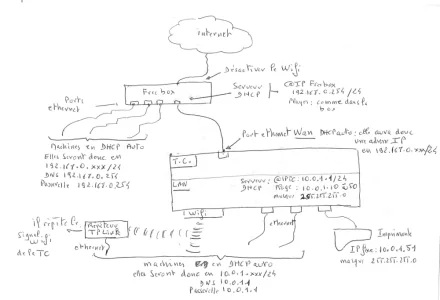 internet
Désactiver le Wifi
Free box
Serveur DHCP
@IP Freebox
192.168.0.254 /24
Plage : comme dans la box
Ports ethernet
Machines en DHCP AUTO
Elles seront donc en
192.168.0.xxx /24
DNS 192.168.0.254
Passerelle 192.168.0.254
Port ethernet Wan DHCP auto : elle aura donc
une adresse IP
en 192.168.0.xxx
T.C.
LAN
Serveur DHCP
@IPTC : 10.0.1.1/24
Plage : 10.0.1.10 à 50
masque 255.255.255.0
Wifi
il répète le
signal
Wifi
de le TC
Répéteur
TP Link
ethernet
ethernet
Imprimante
IP fixe : 10.0.1.51
masque 255.255.255.0
machines en DHCP auto
elles seront donc en 10.0.1.xxx/24
DNS 10.0.1.1
Passerelle 10.0.1.1